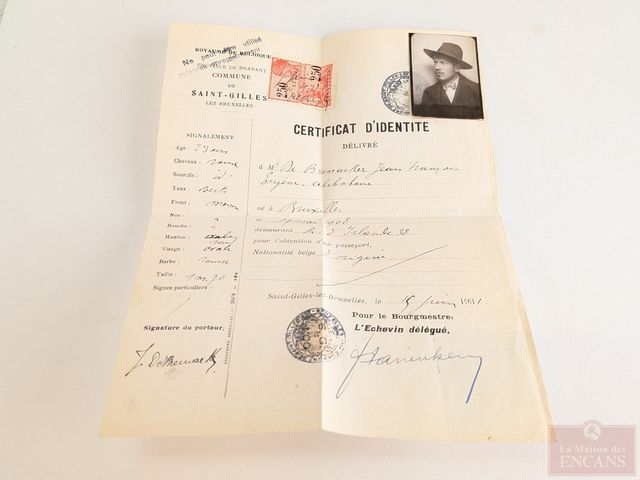 Ne peut être utilisé
qu'après enregistrement
ROYAUME DE BELGIQUE
PROVINCE DE BRABANT
COMMUNE
DE
SAINT-GILLES
LEZ BRUXELLES
250
250
CERTIFICAT D'IDENTITÉ
DÉLIVRÉ
SIGNALEMENT
Age : 23 ans
Cheveux :
Sourcils : id
Yeux : verts
Front : moyen
Nez :
Bouche :
Menton : rond
Visage : ovale
Barbe : rousse
Taille : 1 m. 70
Signes particuliers :
Signature du porteur,
à Mr De Bremaeker Jean François
Eugène, célibataire
né à Bruxelles
le 1908
demeurant rue d'Irlande 58
pour l'obtention d'un passeport.
Nationalité belge d'origine
Saint-Gilles-lez-Bruxelles, le 15 juin 1931.
Pour le Bourgmestre:
L'Echevin délégué,
J. De Bremaeker
La Maison des
ENCANS